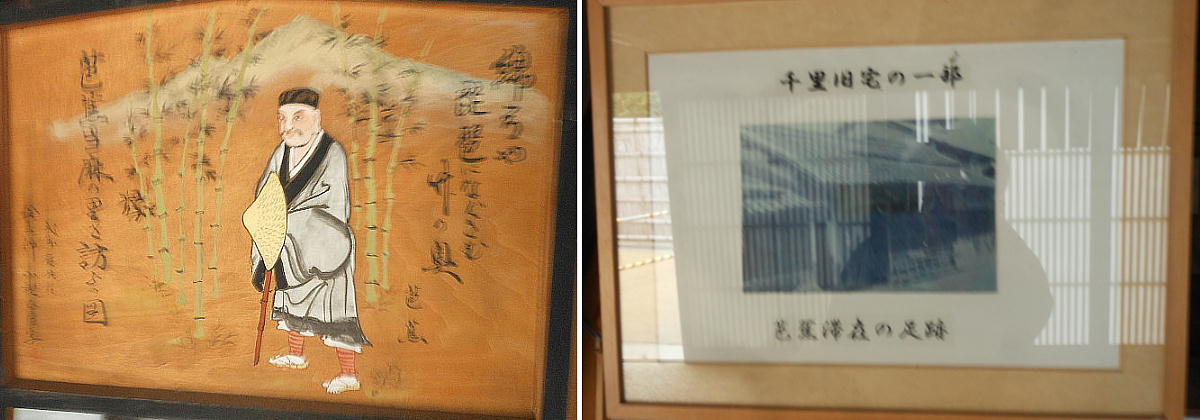 綿弓や
琵琶になぐさむ
竹の奥
芭蕉
芭蕉当麻の里を訪ふの図
千里旧宅の一部
芭蕉滞在の足跡